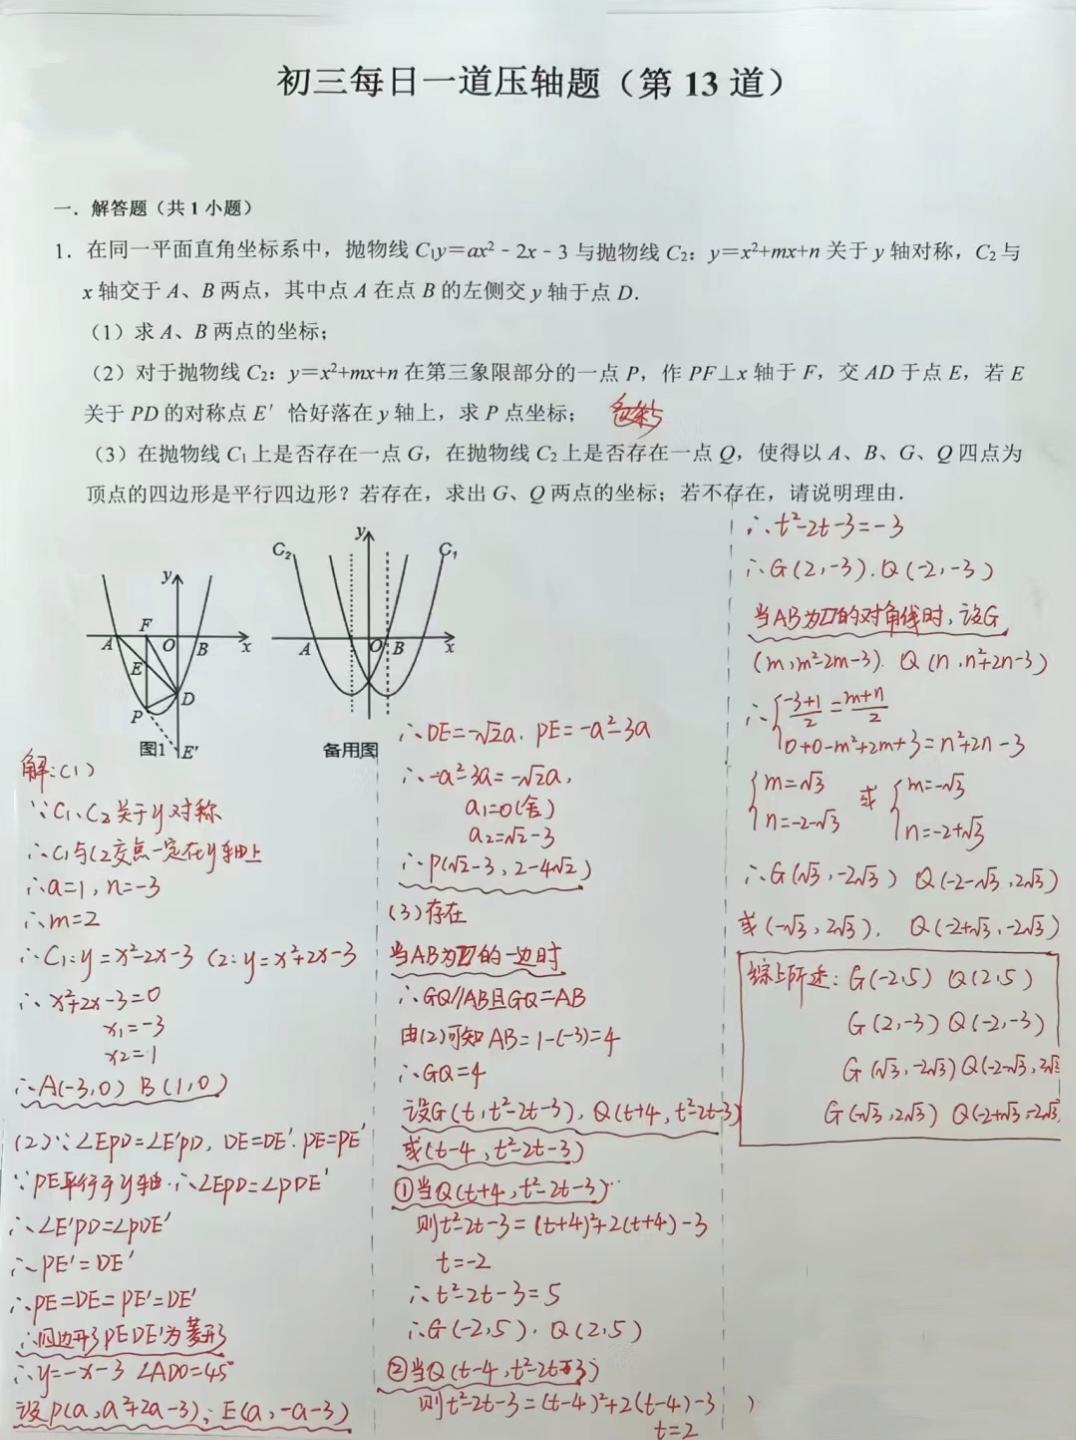 初三每日一道压轴题（第 13 道）
一．解答题（共 1 小题）
1．在同一平面直角坐标系中，抛物线 C₁y＝ax²﹣2x﹣3 与抛物线 C₂：y＝x²+mx+n 关于 y 轴对称，C₂ 与
x 轴交于 A、B 两点，其中点 A 在点 B 的左侧交 y 轴于点 D．
（1）求 A、B 两点的坐标；
（2）对于抛物线 C₂：y＝x²+mx+n 在第三象限部分的一点 P，作 PF⊥x 轴于 F，交 AD 于点 E，若 E
关于 PD 的对称点 E′ 恰好落在 y 轴上，求 P 点坐标；
（3）在抛物线 C₁ 上是否存在一点 G，在抛物线 C₂ 上是否存在一点 Q，使得以 A、B、G、Q 四点为
顶点的四边形是平行四边形？若存在，求出 G、Q 两点的坐标；若不存在，请说明理由．
y
A
F
O
B
x
E
D
P
E′
图1
C₂
y
C₁
A
O
B
x
备用图
解:(1)
∵C₁、C₂关于y对称
∴C₁与C₂交点一定在y轴上
∴a=1, n=-3
∴m=2
∴C₁:y=x²-2x-3 C₂:y=x²+2x-3
∴x²+2x-3=0
x₁=-3
x₂=1
∴A(-3,0) B(1,0)
(2)∵∠EPD=∠E′PD, DE=DE′. PE=PE′
∵PE平行于y轴.∴∠EPD=∠PDE′
∴∠E′PD=∠PDE′
∴PE′=DE′
∴PE=DE=PE′=DE′
∴四边形PEDE′为菱形
∴y=-x-3 ∠ADO=45°
设P(a,a²+2a-3), E(a,-a-3)
∴DE=-√2a. PE=-a²-3a
∴-a²-3a=-√2a,
a₁=0(舍)
a₂=√2-3
∴P(√2-3, 2-4√2)
(3)存在
当AB为▱的一边时
∴GQ//AB且GQ=AB
由(2)可知AB=1-(-3)=4
∴GQ=4
设G(t,t²-2t-3), Q(t+4,t²-2t-3)
或(t-4,t²-2t-3)
①当Q(t+4,t²-2t-3)
则t²-2t-3=(t+4)²+2(t+4)-3
t=-2
∴t²-2t-3=5
∴G(-2,5), Q(2,5)
②当Q(t-4,t²-2t-3)
则t²-2t-3=(t-4)²+2(t-4)-3
t=2
∴t²-2t-3=-3
∴G(2,-3). Q(-2,-3)
当AB为▱的对角线时,设G
(m,m²-2m-3). Q(n,n²+2n-3)
∴{(-3+1)/2=(m+n)/2
0+0-m²+2m+3=n²+2n-3
{m=√3 或 {m=-√3
n=-2-√3 n=-2+√3
∴G(√3,-2√3) Q(-2-√3,2√3)
或(-√3,2√3), Q(-2+√3,-2√3)
综上所述: G(-2,5) Q(2,5)
G(2,-3) Q(-2,-3)
G(√3,-2√3) Q(-2-√3,2√3
G(-√3,2√3) Q(-2+√3,-2√3